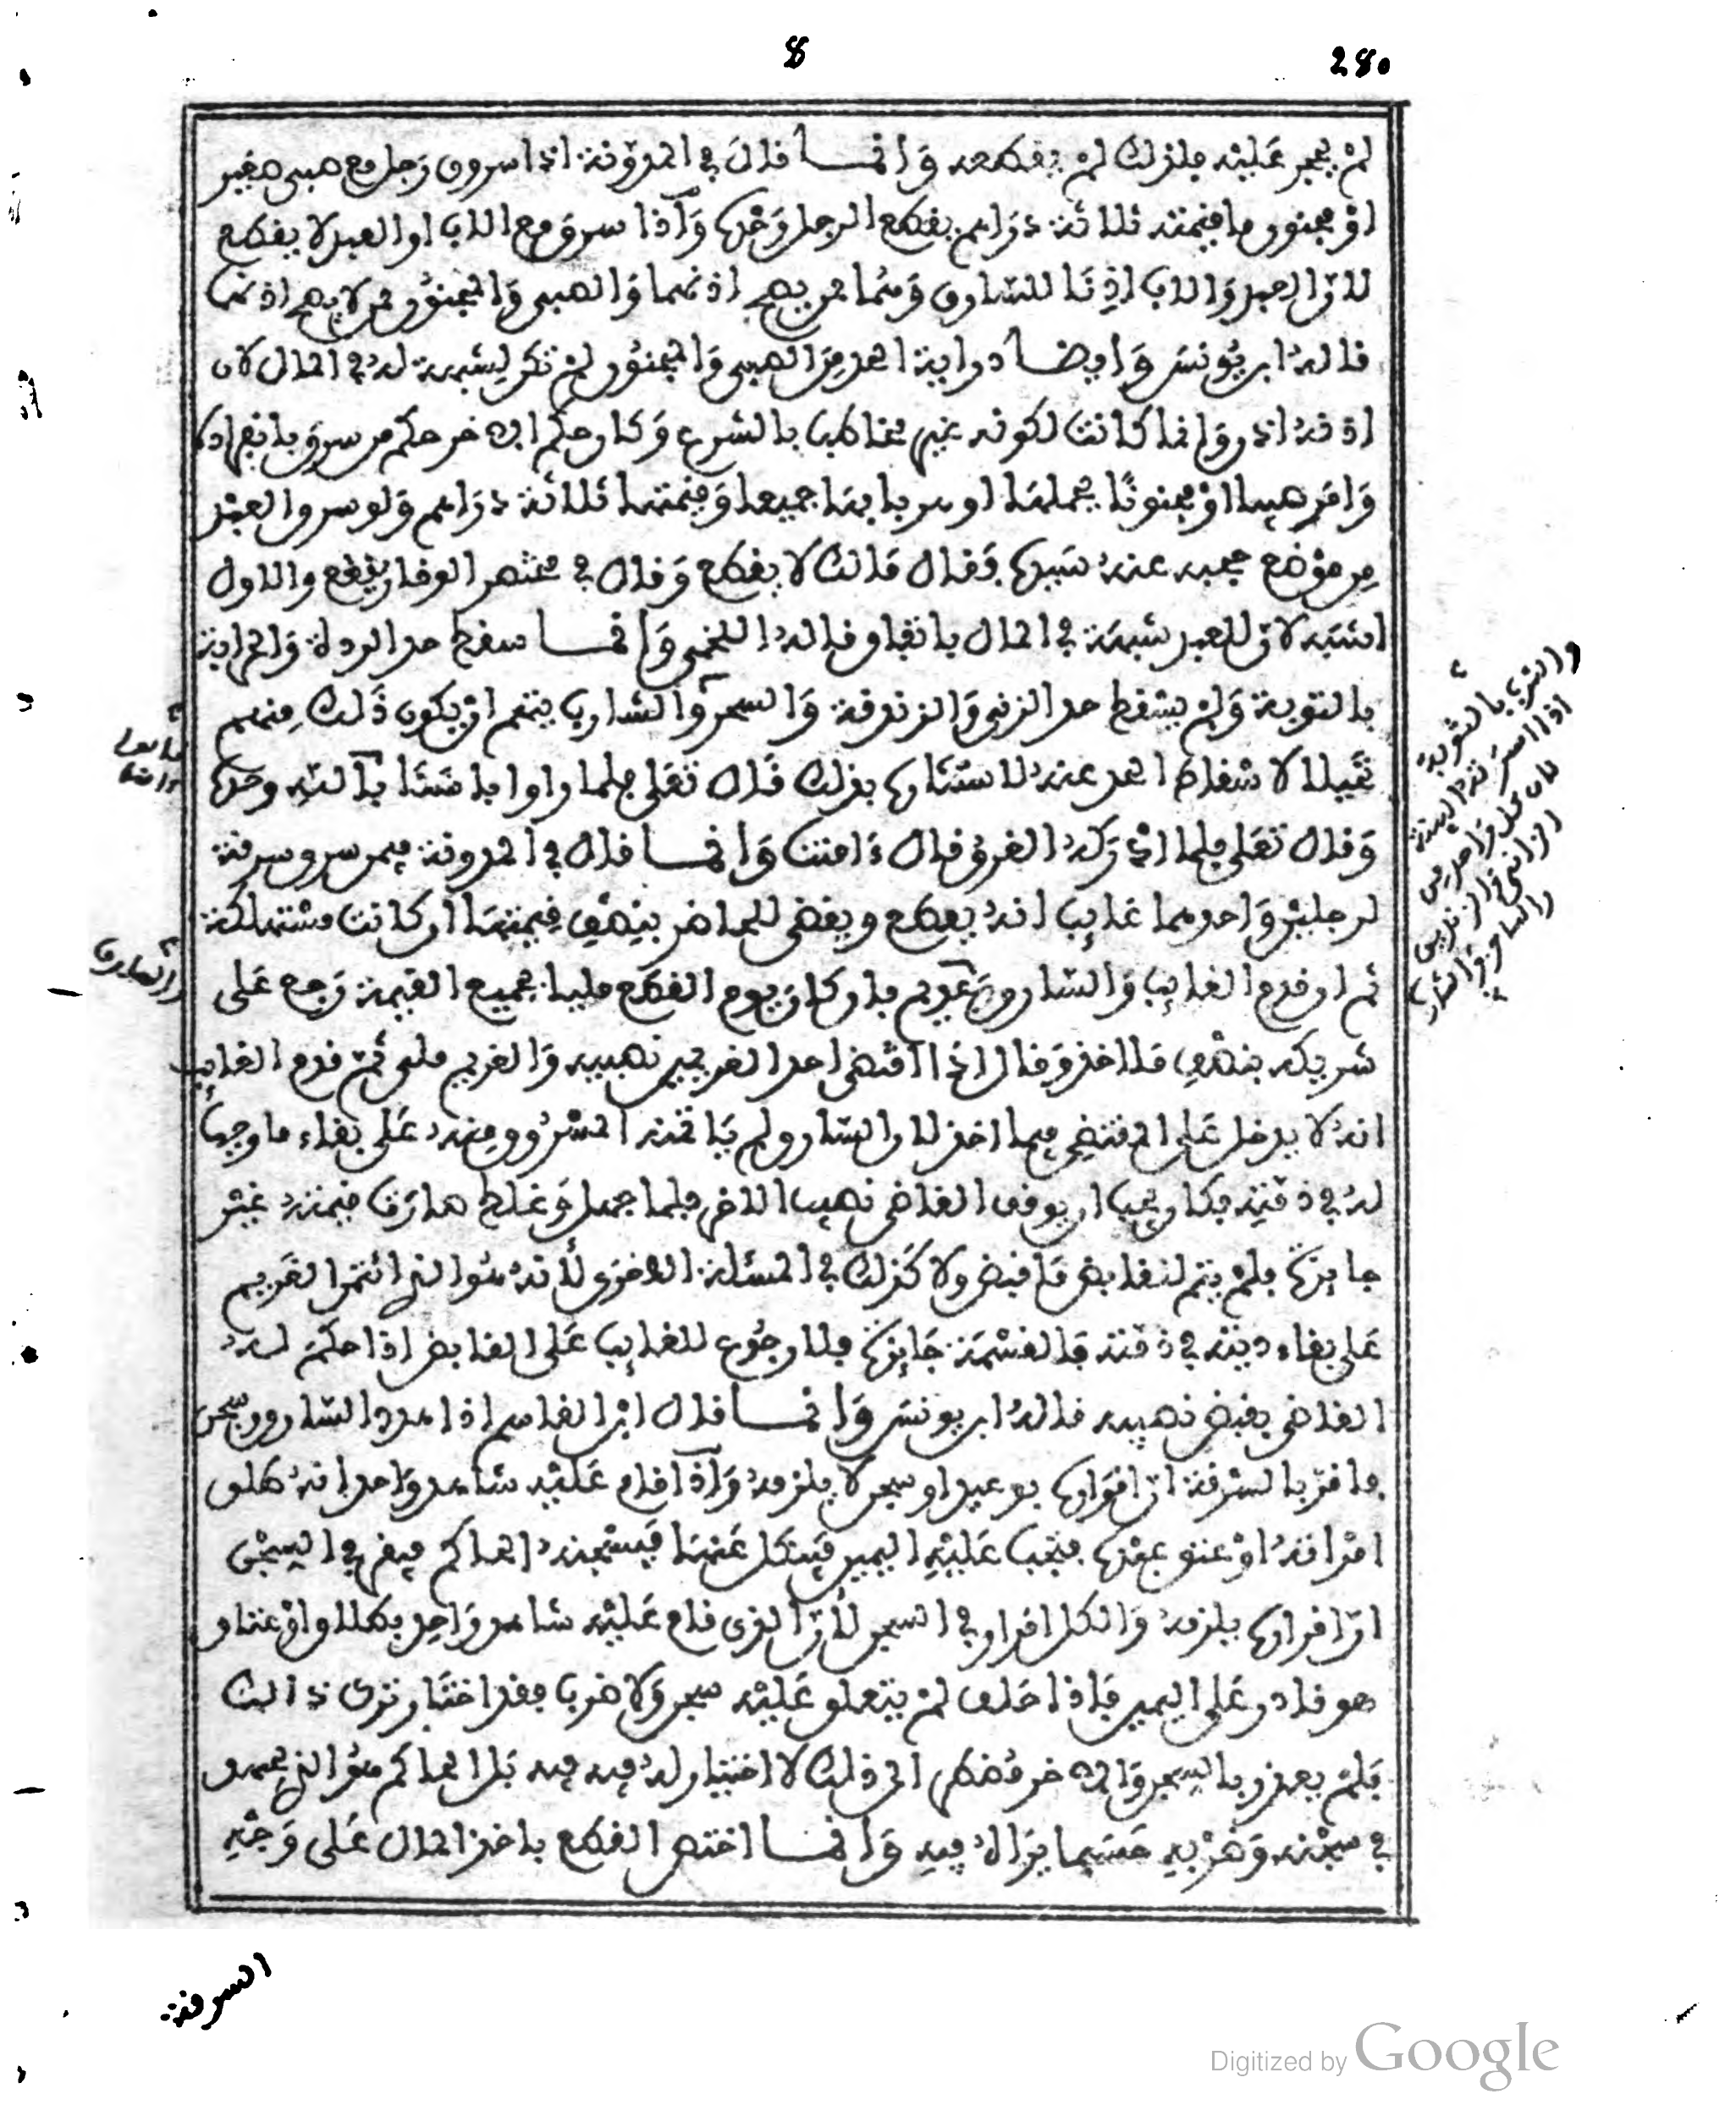 8
280
لم يحجر عليه فلذلك لم يقطعه وانمـا قال في المدونة اذا سرق رجل مع صبي صغير
او مجنون ما قيمته ثلاثة دراهم يقطع الرجل وحده واذا سرق مع الاب او العبد لا يقطع
لان العبد والاب اذنا للسارق وهما ممن يصح اذنهما والصبي والمجنون ممن لا يصح اذنهما
قاله ابن يونس وايضـا دراية الحد من الصبي والمجنون لم تكن لشبهة له في المال لان
وامر صبيا او مجنونا جميعا وقيمتها ثلاثة دراهم ولو سرق العبد
من موضع حجبه عنه سيده فقال مالك لا يقطع وقال في مختصر الوقار يقطع والاول
اشبه لان للعبد شبهة في المال باتفاق قاله اللخمي وانمـا سقط حد الردة والحرابة
بالتوبة ولم يسقط حد الزنى والزندقة والسحر والشارب يتهم ان يكون ذلك منهم
تحيلا لاسقاط الحد عنه لاستتاره بذلك قال تعلى فلما راوا باسنا بالله وحده
وقال تعلى فلما ادركه الغرق قال ءامنت وانمـا قال في المدونة فيمن سرق سرقة
لرجلين واحدهما غايب انه يقطع ويقضى للحاضر بنصف قيمتها ان كانت مستهلكة
ثم ان قدم الغايب والسارق عديم فان كان يوم القطع مليا بجميع القيمة رجع على
شريكه بنصف ما اخذ وقال اذا اقتضى احد الغريمين نصيبه والغريم ملي ثم قدم الغايب
انه لا يدخل على المقتضي فيما اخذ لان السارق لم ياتمنه المسروق منه على بقاء ما وجب
له في ذمته فكان يجب ان يوقف القاضي نصيب الاخر فلما جهل وغلط صارت قيمته غير
جايزة فلم يتم لقابض ما قبض ولا كذلك في المسئلة الاخرى لانه هو الذي ائتمن الغريم
على بقاء دينه في ذمته فالقسمة جايزة فلا رجوع للغايب على القابض اذا حكم لـه
القاضي بقبض نصيبه قاله ابن يونس وانمـا قال ابن القاسم اذا هدد السارق بسجن
فاقر بالسرقة ان اقراره بوعيد او سجن لا يلزمه واذا اقام عليه شاهد واحد انه طلق
امراته او عتق عبده فيجب عليه اليمين فينكل عنها فيسجنه الحاكم فيقر في السجن
ان اقراره يلزمه والكل اقرار في السجن لان الذي قام عليه شاهد واحد بطلاق او عتاق
هو قادر على اليمين فاذا حلف لم يتعلق عليه سجن ولا ضرب فقد اختار ترك ذالك
فلم يعذر بالسجن والاخر مضطر الى ذلك لا اختيار له فيه بل الحاكم هو الذي
في سجنه وضربه حسبما يراه فيه وانمـا اختص القطع باخذ المال على وجه
والسارق
السرقة
Digitized by Google